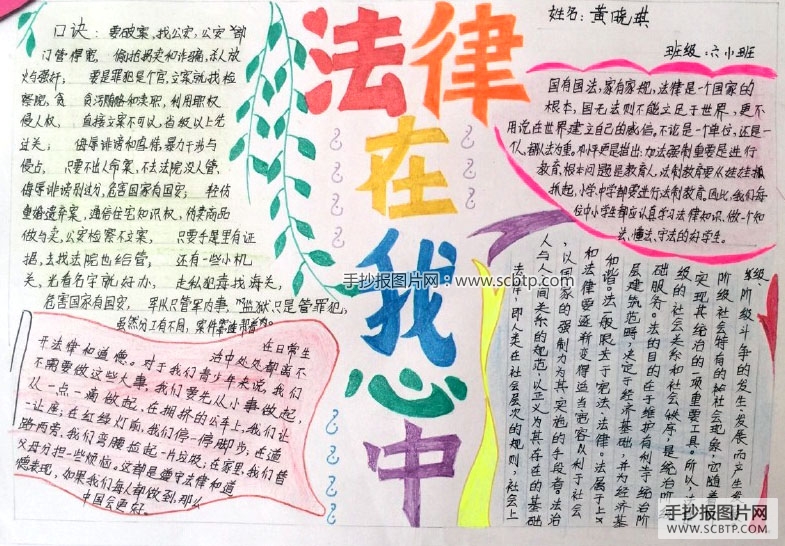 法律
在
我
心
中
姓名：黄晓琪
班级：六小班
口诀：要破案，找公安，公安部
门管得宽，偷抢拐卖和诈骗，杀人放
火与强奸，要是罪犯是个官，立案就找检
察院，贪 贪污贿赂和渎职，利用职权
侵人权，直接立案不可以，省级以上先
过关，侮辱诽谤和虐待，暴力干涉与
侵占，只要不出人命案，不去法院没人管，
侮辱诽谤别过奶，危害国家有国安，轻伤
重婚遗弃案，通信住宅知识权，伪劣商品
做与卖，公安检察不立案，只要手是里有证
据，去找法院也给管，还有一些小机
关，光看名字就好办，走私犯毒找海关，
危害国家有国安，军队只管军内事，监狱只是管罪犯，
虽然分工有不同，案件
国有国法，家有家规，法律是一个国家的
根本，国无法则不能立足于世界，更不
用说在世界建立自己的威信，不论是一个单位，还是一
个人，都认为重。邓小平更是指出：加法强制重要是进行
教育，根本问题是教育人，法制教育要从娃娃
抓起，小学中学都要进行法制教育。因此，我们每
位中小学生都应认真学习法律知识，做一个知
法、懂法、守法的好学生。
在日常生
法中处处都离不
开法律和道德。对于我们青少年来说，我们
不需要做这些大事，我们要先从小事做起，
从一点一滴做起，在拥挤的公车上，我们让
一让座；在红绿灯前，我们停一停脚步；在道
路两旁，我们弯腰捡起一片垃圾；在家里，我们替
父母分担一些烦恼。这都是遵守法律和道
德表现，如果我们每人都做到，那么
中国会更好。
级、阶级斗争的发生、发展而产生
阶级社会特有的社会现象，它随着
实现其统治的一项重要工具。所以，法
级的社会关系和社会秩序，是统治阶
础服务。法的目的在于维护有利于统治阶
层建筑范畴，决定于经济基础，并为经济基
和谐。法一般限于宪法、法律。法属于上
和法律要逐渐变得适当宽容以利于社会
，以国家的强制力为其实施的手段者。法治
人与人之间关系的规范，以正义为其存在的基础
法律，即人类在社会层次的规则，社会上
手抄报图片网 www.scbtp.com
手抄报图片网
SCBTP.COM